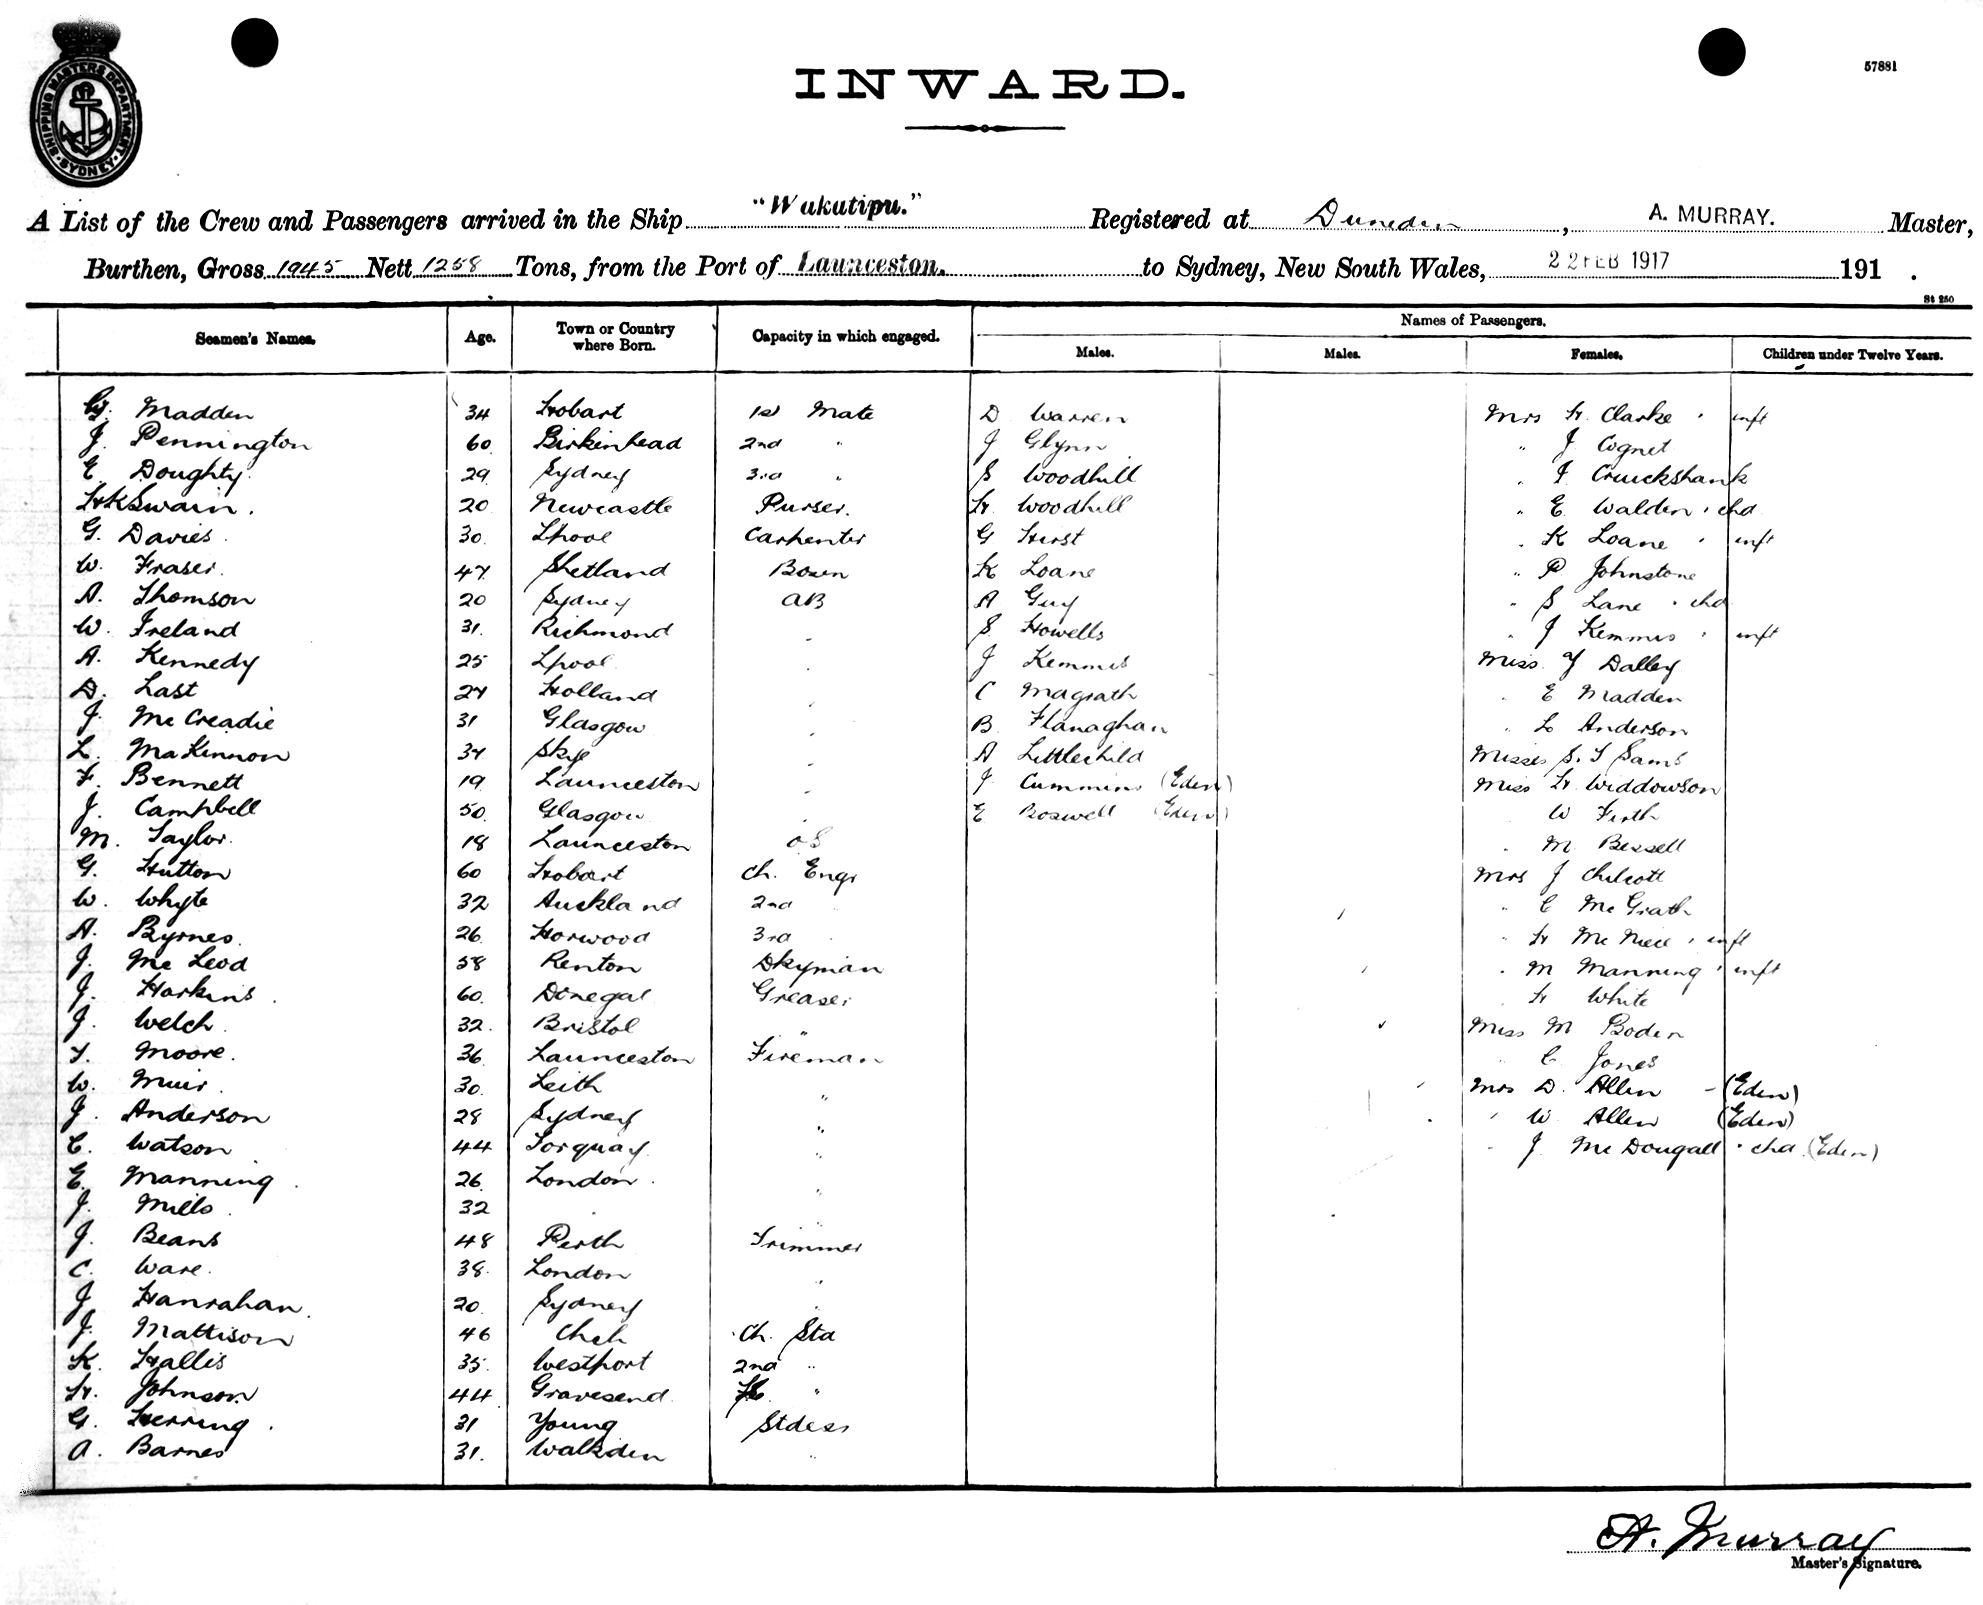 SHIPPING MASTERS DEPARTMENT
SYDNEY
57881
INWARD.
A List of the Crew and Passengers arrived in the Ship "Wakatipu." Registered at Dunedin, A. MURRAY. Master,
Burthen, Gross 1945 Nett 1258 Tons, from the Port of Launceston. to Sydney, New South Wales, 22 FEB 1917 191 .
St 250
Seamen's Names. Age. Town or Country where Born. Capacity in which engaged. Names of Passengers.
Males. Males. Females. Children under Twelve Years.
G. Madden 34 Hobart 1st Mate D Warren Mrs H. Clarke · inft
J. Pennington 60 Birkinhead 2nd " J Glynn " J Cognet
E. Doughty 29 Sydney 3rd " S Woodhill " J Cruickshank
H K Swain. 20 Newcastle Purser. H. Woodhill " E Walden · chd
G. Davies. 30. Lpool Carpenter G Hirst " K Loane · inft
W. Fraser. 47 Shetland Bosen K Loane " P Johnstone
A. Thomson 20 Sydney AB A Guy " S Lane · chd
W. Ireland 31. Richmond " S. Howells " J Kemmis · inft
A. Kennedy 25 Lpool " J Kemmis Miss Y Dalley
D. Last 24 Holland " C Magrath " E Madden
J. Mc Creadie 31 Glasgow " B Flanaghan " L Anderson
L. MaKinnon 34 Skye " A Littlechild Misses S. T Sams
F. Bennett 19 Launceston " J Cummins (Eden) Miss H. Widdowson
J. Campbell 50. Glasgow " E Boswell (Eden) W Firth
M. Taylor. 18 Launceston OS " M Bessell
G. Hutton 60 Hobart Ch. Engr Mrs J Chilcott
W. Whyte 32 Auckland 2nd " C McGrath
A. Byrnes. 26 Horwood 3rd " H McNiece · inft
J. Mc Leod 58 Renton Dkyman " M Manning · inft
J. Harkins. 60. Donegal Greaser H White
J. Welch. 32. Bristol " Miss M Boden
T. Moore. 36 Launceston Fireman " C Jones
W. Muir. 30. Leith " Mrs D. Allen - (Eden)
J. Anderson 28 Sydney " " W Allen (Eden)
C. Watson 44 Torquay " " J McDougall · chd (Eden)
E. Manning. 26. London. "
J. Mills. 32 "
J. Beans 48 Perth Trimmer
C. Ware. 38. London "
J Hanrahan. 20. Sydney "
J. Mattison 46 Chch Ch. Std
K. Hallis 35. Westport 2nd "
H. Johnson. 44 Gravesend "
G. Herring. 31 Young Stdess
A. Barnes 31. Walkden "
A. Murray
Master's Signature.